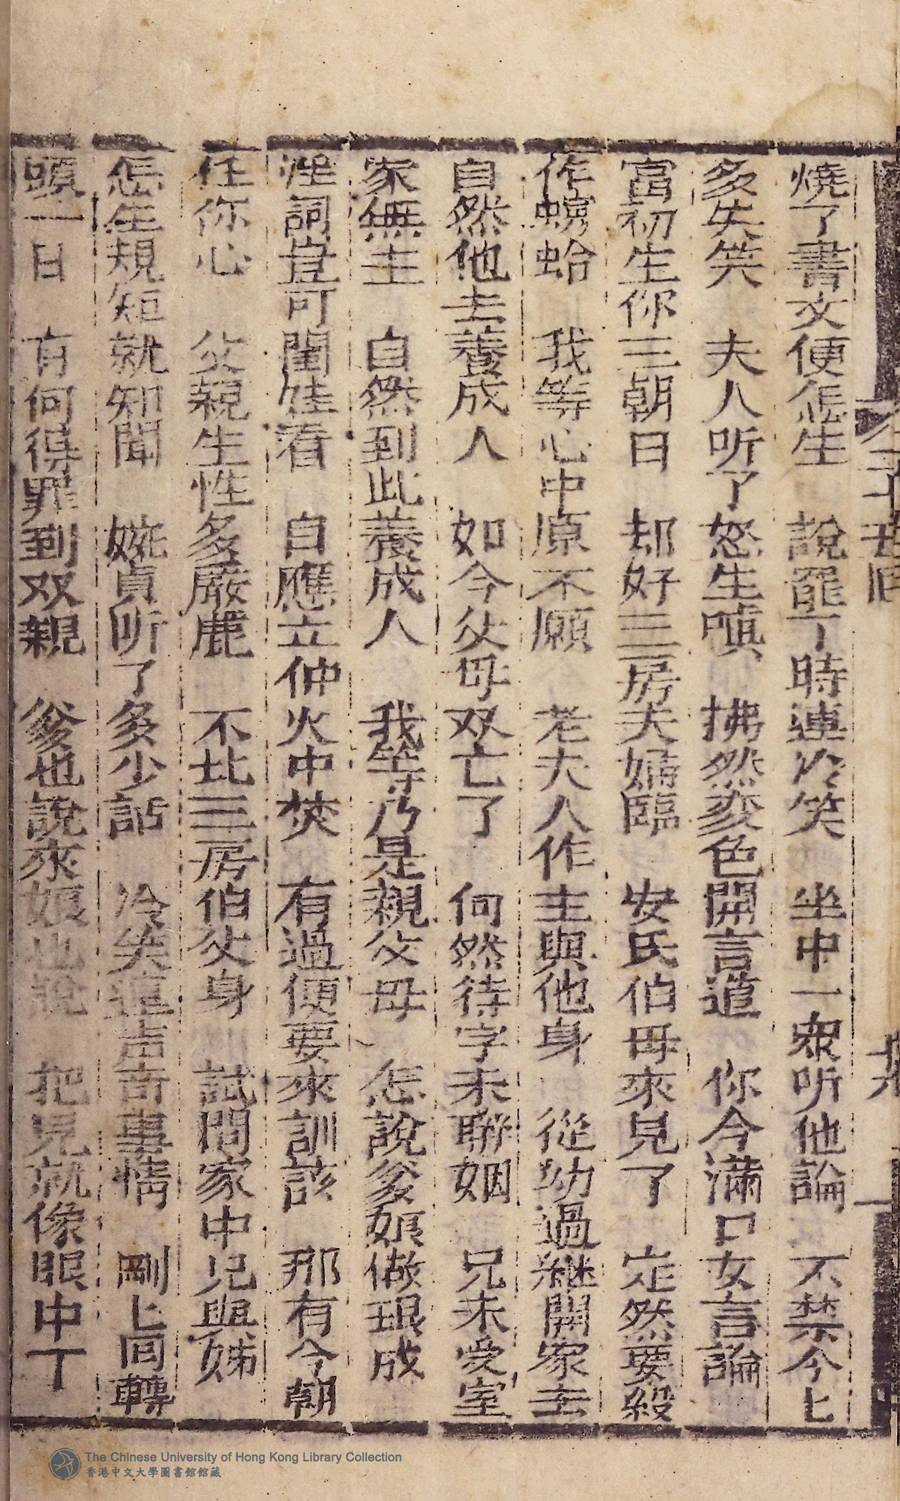 燒了書文便怎生　說罷了時連冷笑　坐中一衆听他論　不禁今上
多失笑　夫人听了怒生嗔　拂然変色開言道　你今滿口女言論
富初生你三朝日　却好三房夫婦臨　安氏伯母來見了　定然要殺
作螟蛉　我等心中原不願　老夫人作主與他身　從幼過繼開家去
自然他去養成人　如今父母双亡了　何然待字未聯姻　兄未愛室
家無主　自然到此養成人　我等乃是親父母　怎說爹娘做現成
淫詞豈可閨娃看　自應立仲火中焚　有過便要來訓該　那有今朝
任你心　父親生性多嚴鹿　不比三房伯父身　試問家中兄與姊
怎生規矩就知聞　婉貞听了多少話　冷笑連声言事情　剛上回轉
頭一日　有何得罪到双親　爹也說來娘也說　把兒就像眼中丁
The Chinese University of Hong Kong Library Collection
香港中文大學圖書館館藏